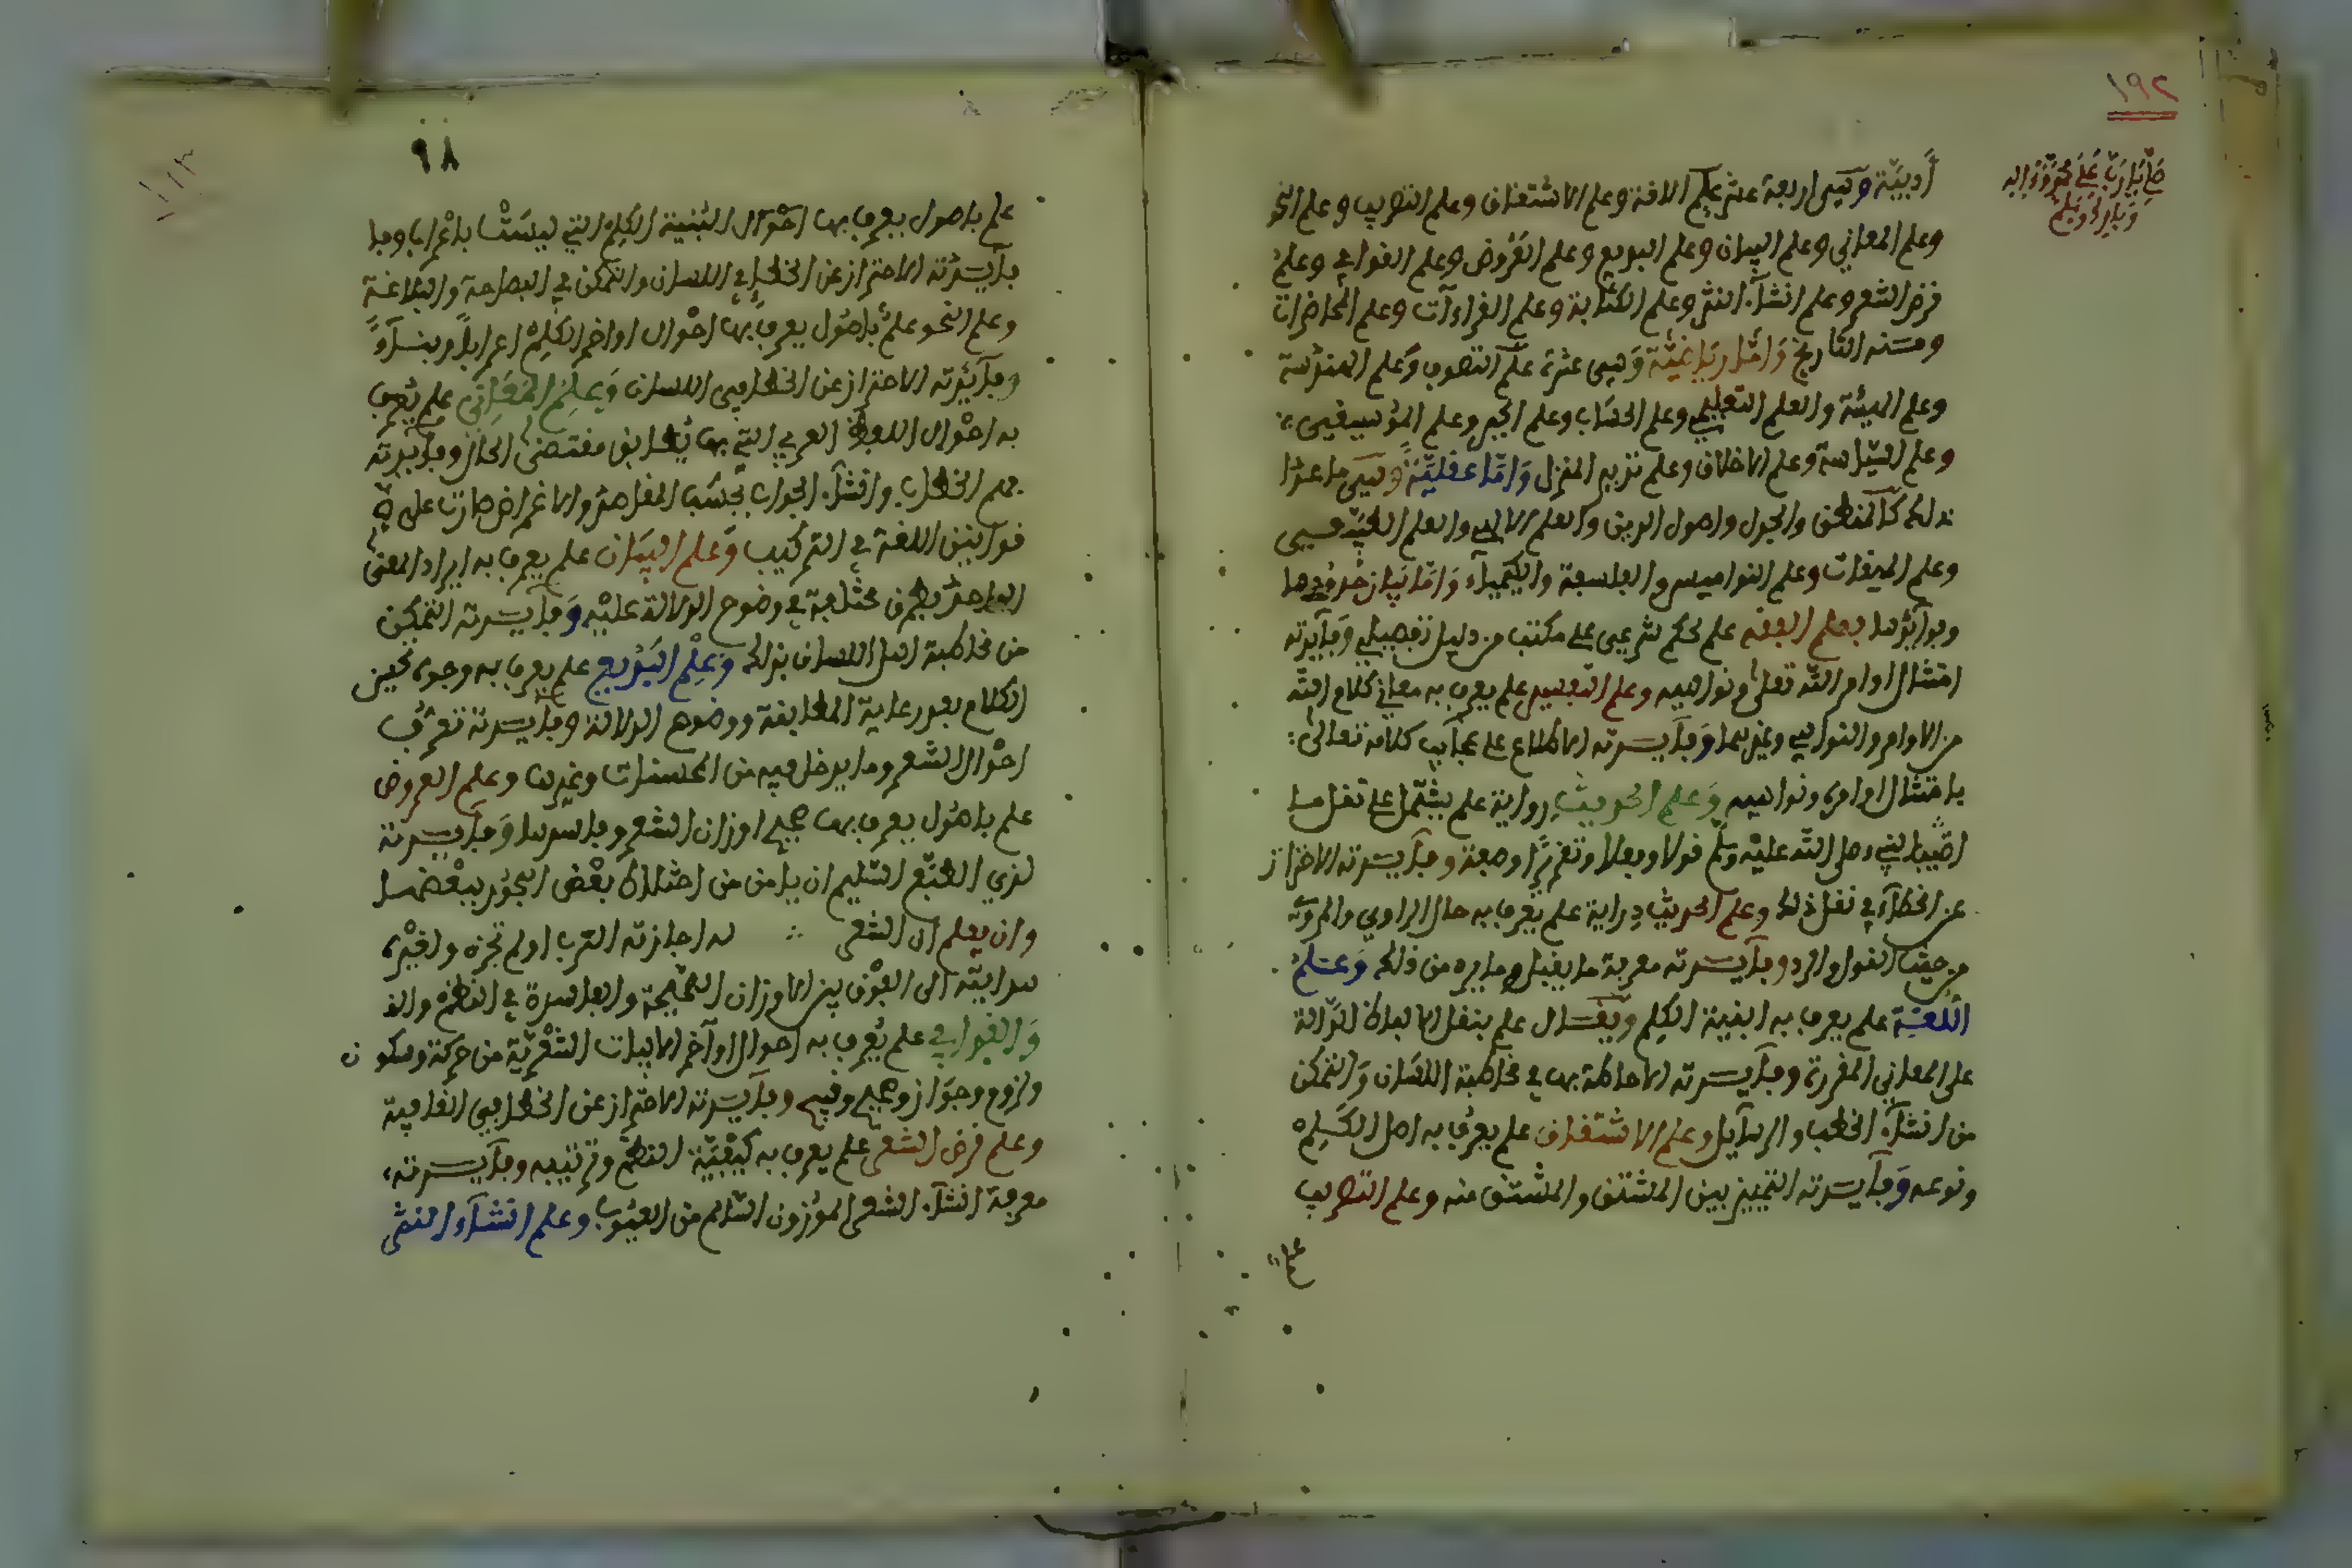 ١٩٢
صل يا رب على محمد وءاله
وبارك وسلم
أدبيّة وهى اربعة عشر علم اللغة وعلم الاشتقاق وعلم التصريف وعلم النحو
وعلم المعاني وعلم البيان وعلم البديع وعلم العروض وعلم القوافي وعلم
قرض الشعر وعلم انشآء النثر وعلم الكتابة وعلم القراءات وعلم المحاضرات
ومنه التاريخ وامّا رياضيّة وهى عشرة علم التصوف وعلم الهندسة
وعلم الهيئة والعلم التعليمي وعلم الحساب وعلم الجبر وعلم الموسيقى
وعلم السّياسة وعلم الاخلاق وعلم تدبير المنزل وامّا عقليّة وهى ما عدا
ذلك كالمنطق والجدل واصول الدين والعلم الالهي والعلم الطبيعى
وعلم الميقات وعلم النواميس والفلسفة والكيمياء وامّا بيان حدودها
وفوآئدها فعلم الفقه علم بحكم شرعى عملى مكتسب من دليل تفصيلي وفآئدته
امتثال اوامر الله تعلى ونواهيه وعلم التفسير علم يعرف به معاني كلام الله
من الاوامر والنواهي وغيرهما وفآئدته الاطلاع على عجآئب كلامه تعالى
بامتثال اوامره ونواهيه وعلم الحديث رواية علم يشتمل على نقل ما
اضيف للنبي صلى الله عليه وسلم قولا وفعلا وتقريرًا وصفة وفآئدته الاحتراز
عن الخطإ في نقل ذلك وعلم الحديث دراية علم يعرف به حال الراوي والمروي
من حيث القبول والرد وفآئدته معرفة ما يقبل وما يرد من ذلك وعلم
اللغة علم يعرف به ابنية الكلم ويقال علم بنقل الالفاظ الدّالة
على المعاني المفردة وفآئدته الاحاطة بها في مخاطبة اللسان والتمكن
من انشآء الخطب والرسآئل وعلم الاشتقاق علم يعرف به اصل الكلم
ونوعه وفآئدته التمييز بين المشتق والمشتق منه وعلم التصريف
علم
٩٨
علم باصول يعرف بها احوال ابنية الكلم التي ليست باعراب وفا
فآئدته الاحتراز عن الخطإ في اللسان والتمكن في الفصاحة والبلاغة
وعلم النحو علم باصول يعرف بها احوال اواخر الكلم اعرابًا وبنآءً
وفآئدته الاحتراز عن الخطا في اللسان وعلم المعاني علم يعرف
به احوال اللفظ العربي التي بها يطابق مقتضى الحال وفآئدته
فهم الخطاب وانشآء الجواب بحسب المقاصد والاغراض جاريا على
قوانين اللغة في التركيب وعلم البيان علم يعرف به ايراد المعنى
الواحد بطرق مختلفة في وضوح الدلالة عليه وفآئدته التمكن
من مخاطبة اهل اللسان بذلك وعلم البديع علم يعرف به وجوه تحسين
الكلام بعد رعاية المطابقة ووضوح الدلالة وفآئدته تعرف
احوال الشعر وما يدخل فيه من المحسنات وغيرها وعلم العروض
علم باصول يعرف بها صحيح اوزان الشعر وفاسدها وفآئدته
لذي الطبع السّليم ان يامن من اختلاط بعض البحور ببعضها
وان يعلم ان الشعر ∴ به اجازته العرب اولم تجزه ولغيره
هدايته الى الفرق بين الاوزان الصّحيحة والفاسدة في النظم
والقوافي علم يعرف به احوال اواخر الابيات الشعريّة من حركة وسكون
ولزوم وجواز وفصيح وقبيح وفآئدته الاحتراز عن الخطا في القافية
وعلم قرض الشعر علم يعرف به كيفيّة النظم وترتيبه وفآئدته
معرفة انشآء الشعر الموزون السّالم من العيوب وعلم انشآء النثر